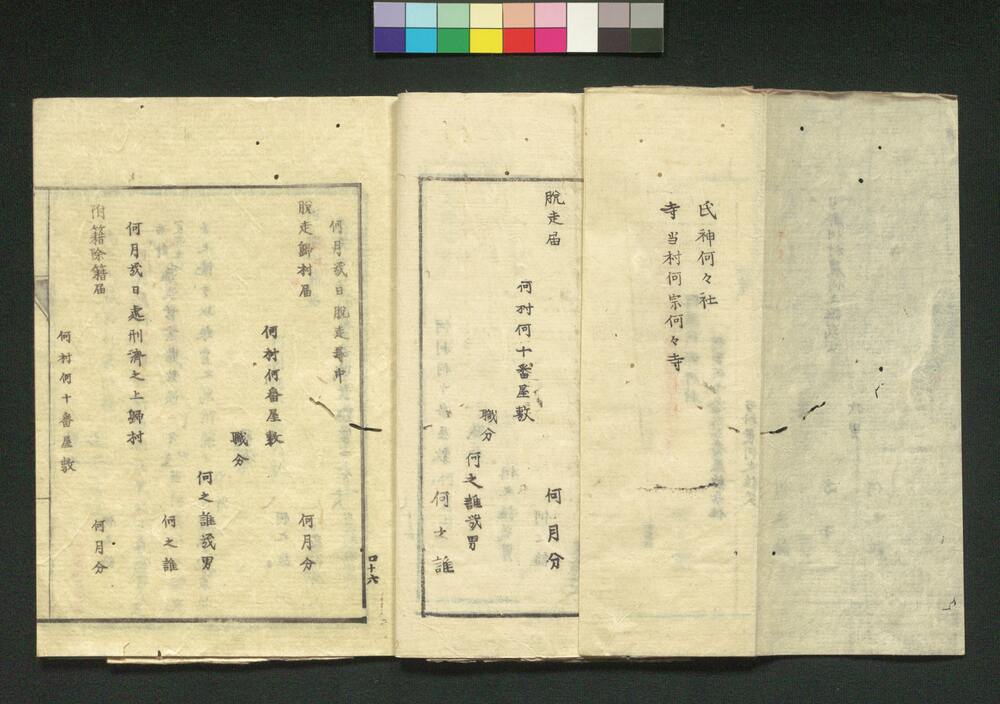 氏神何々社
寺 当村何宗何々寺
脱走届
何月分
何村何十番屋敷
職分
何之誰弐男
何之誰
口十六
何月弐日脱走尋中
脱走帰村届
何月分
何村何番屋敷
職分
何之誰弐男
何之誰
何月弐日処刑済之上帰村
附籍除籍届
何月分
何村何十番屋敷